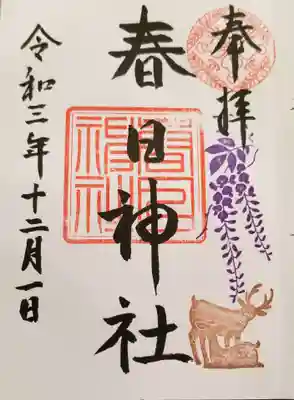 奉拝
春日神社
春日
神社
令和三年十二月一日